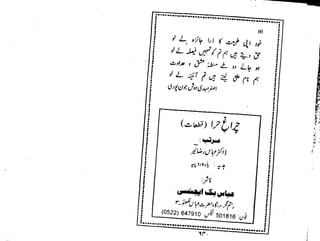 III
خود اپنی طبیعت کا ذرا جائزہ لے لو
حق دیتے ہیں ہم تم کو تمہیں فیصلہ لے لو
ہو جائے دو طے مسئلۂ عشق و عداوت
ہم نام علی لیتے ہیں تم آئینہ لے لو
اصغر مہدی ہوش جون پوری
چراغِ حرا (قطعات)
مرتب:
ڈاکٹر عباس رضا نیر
ہدیہ: بارہ روپیہ
ناشر:
عباس بک ایجنسی
رستم نگر، درگاہ حضرت عباس لکھنؤ۔ ۳
فون 501816 فیکس 647910 (0522)